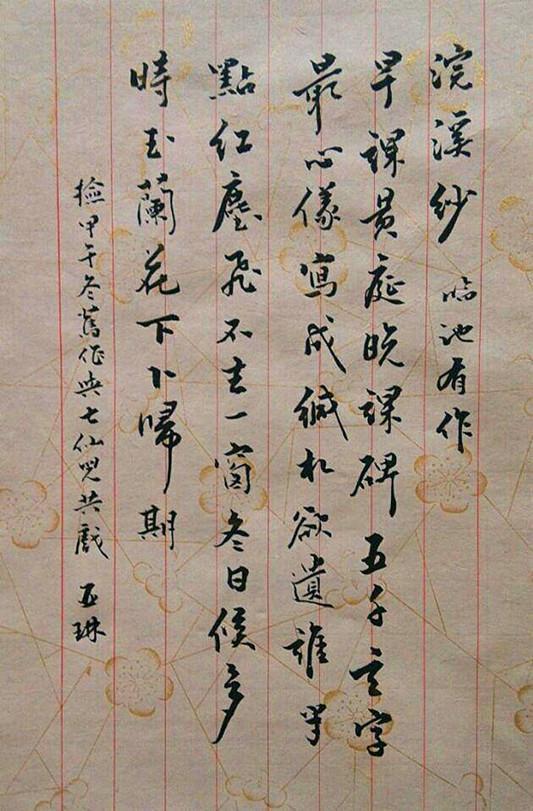 浣溪紗 临池有作
早課黄庭晚課碑五千言字
最心儀寫成緘札欲遺誰半
點紅塵飛不去一窗冬日候多
時玉蘭花下卜歸期
撿甲午冬舊作與七仙兒共戲 亚琳